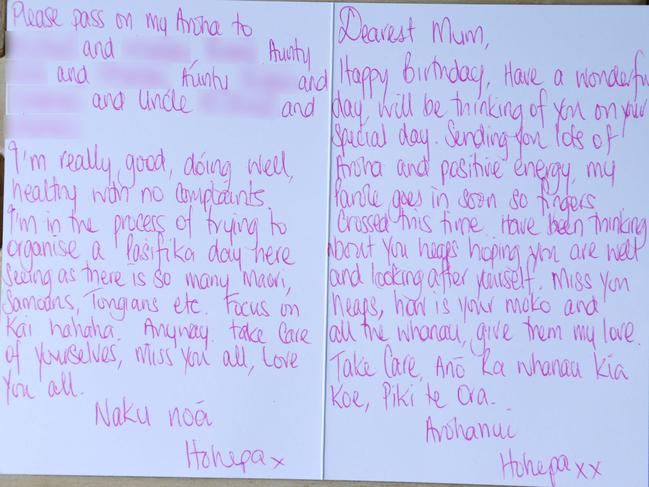 Please pass on my Aroha to
and Aunty
and Aunty and
and Uncle and
I'm really good, doing well,
healthy with no complaints.
I'm in the process of trying to
organise a Pasifika day here
seeing as there is so many Maori,
Samoans, Tongans etc. Focus on
Kai hahaha. Anyway take care
of yourselves, miss you all, love
you all.
Naku noa
Hohepa x
Dearest Mum,
Happy Birthday, Have a wonderful
day, will be thinking of you on your
special day. Sending you lots of
Aroha and positive energy, my
Parole goes in soon so fingers
crossed this time. Have been thinking
about you heaps hoping you are well
and looking after yourself. Miss you
heaps, how is your moko and
all the whanau, give them my love.
Take Care, Ano ra whanau kia
Koe, Piki te Ora.
Arohanui
Hohepa xx